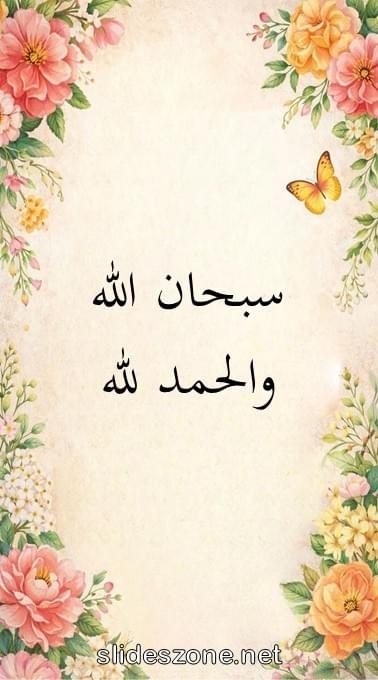 سبحان الله
والحمد لله
slideszone.net